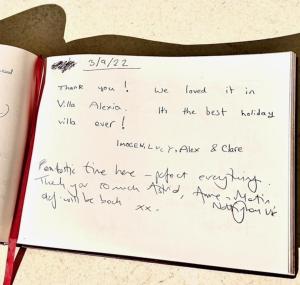 3/9/22
Thank you! We loved it in
Villa Alexia. Its the best holiday
villa ever!
Imogen, Lucy, Alex & Clare
Fantastic time here - perfect everything.
Thank you so much Astrid, Anne, Martin
will be back xx.